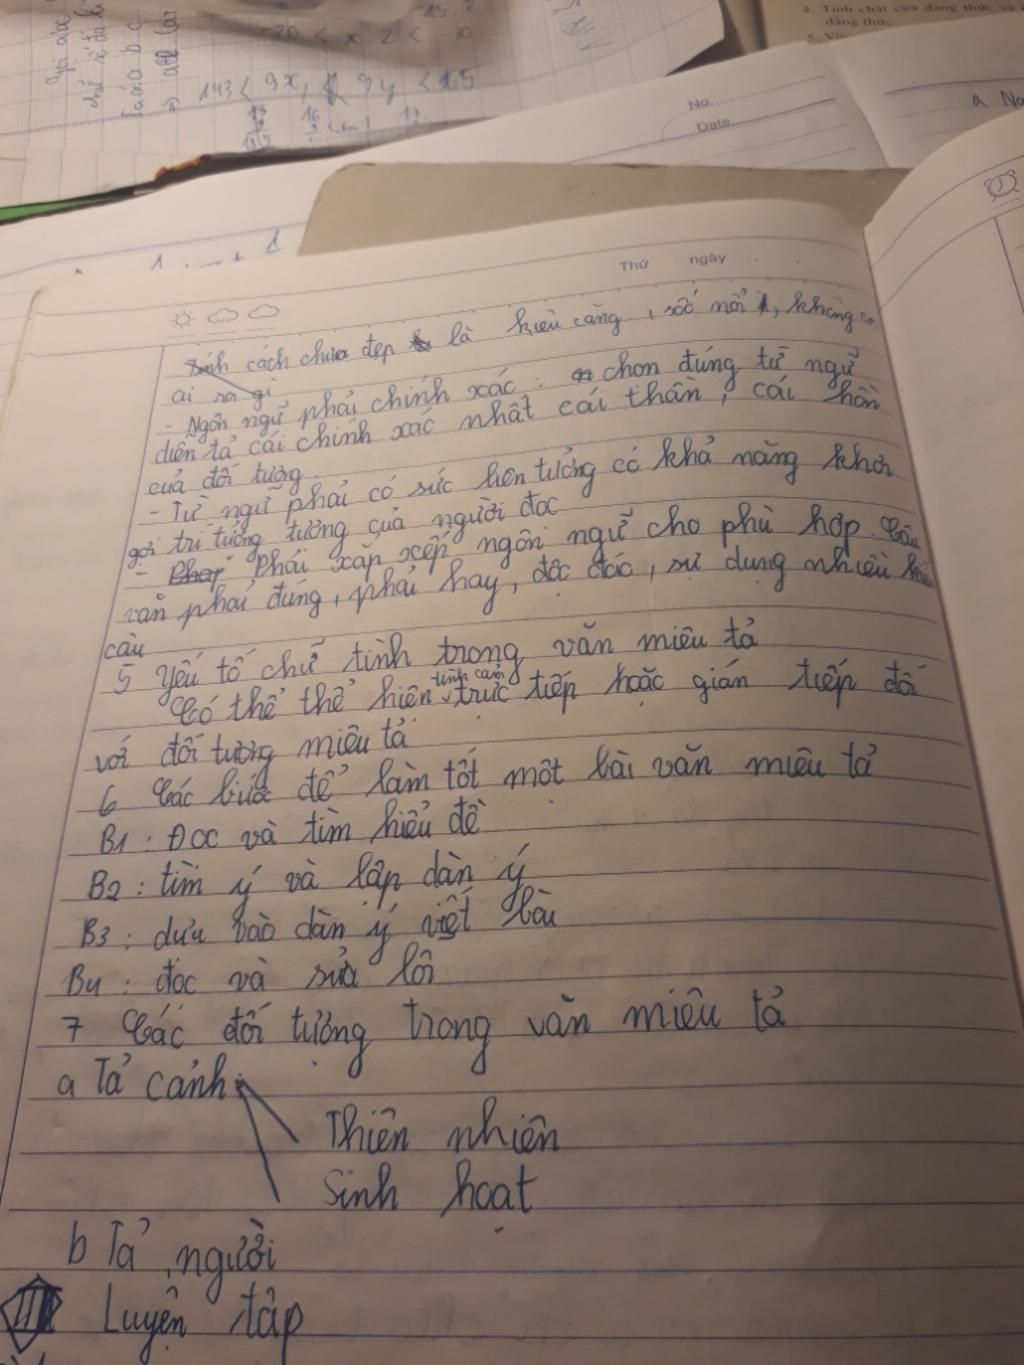 -15.2
-20 < x.2 < 30
143 < 9x, 9y < 165
4. Tính chất của đẳng thức và
đẳng thức
No.
Date.
a No
Thứ ngày
tính cách chưa đẹp là kiêu căng, xốc nổi, không
ai
- Ngôn ngữ phải chính xác: chọn đúng từ ngữ
diễn tả cái chính xác nhất cái thần, cái hồn
của đối tượng.
- Từ ngữ phải có sức liên tưởng có khả năng khơi
gợi trí tưởng tượng của người đọc
- Phải xắp xếp ngôn ngữ cho phù hợp. Câu
văn phải đúng, phải hay, độc đáo, sử dụng nhiều kiểu
câu
5 Yếu tố chữ tình trong văn miêu tả
Có thể thể hiện tình cảm trực tiếp hoặc gián tiếp đối
với đối tượng miêu tả
6 Các bước để làm tốt một bài văn miêu tả
B1: Đọc và tìm hiểu đề
B2: tìm ý và lập dàn ý
B3: dựa vào dàn ý viết bài
B4: đọc và sửa lỗi
7 Các đối tượng trong văn miêu tả
a Tả cảnh:
Thiên nhiên
Sinh hoạt
b Tả người
III Luyện tập